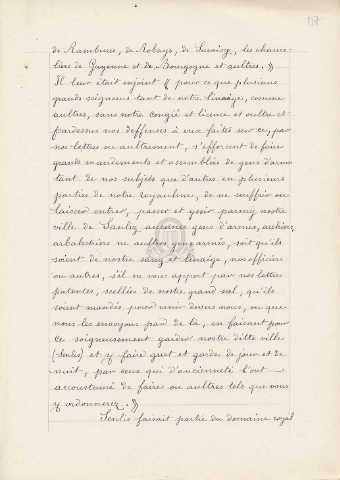 117
de Rambures, de Robays, de Savoisy, les chance-
liers de Guyenne et de Bourgogne et aultres. »
Il leur était enjoint « pour ce que plusieurs
grands seigneurs tant de notre linaige, comme
aultres, sans notre congié et licence et oultre et
pardessus nos deffenses à eux faites sur ce, par
nos lettres ou aultrement, s'efforcent de faire
grands mandements et assemblées de gens d'armes
tant de nos subjets que d'autres en plusieurs
parties de notre royaulme, de ne souffrir ou
laisser entrer, passer et yssir parmy nostre
ville de Senlis aucunes gens d'armes, archiers,
arbalestriers ne aultres gens armés, soit qu'ils
soient de nostre sang et linaige, nos officiers
ou autres, s'il ne vous appert par nos lettres
patentes, scellées de nostre grand scel, qu'ils
soient mandés pour venir devers nous, ou que
nous les envoyons par de là, en faisant pour
ce soigneusement garder nostre dite ville
(Senlis) et y faire guet et gardes de jour et de
nuit, par ceux qui d'ancienneté l'ont
accoustumé de faire ou aultres tels que vous
y ordonnerez. »
Senlis faisait partie du domaine royal